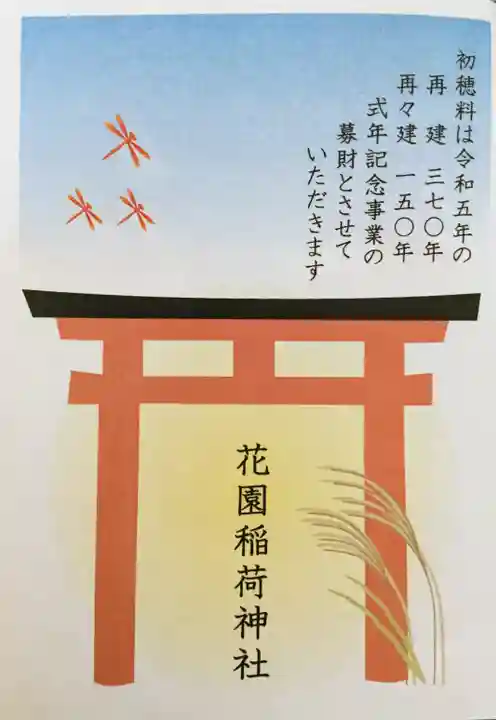 初穂料は令和五年の
再 建 三七〇年
再々建 一五〇年
式年記念事業の
募財とさせて
いただきます
花園稲荷神社